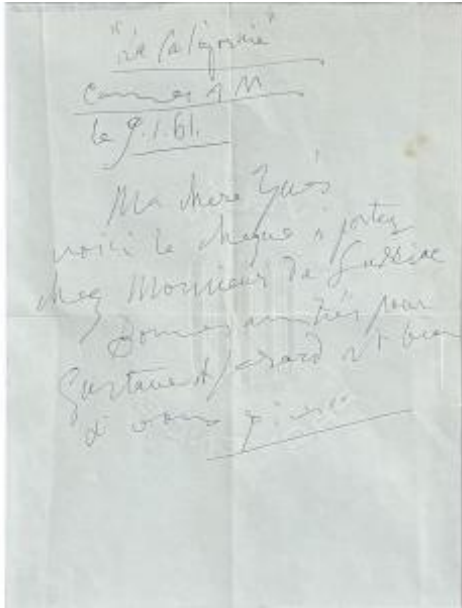 "La Californie"
Cannes A M
le 9.1.61.
Ma chere Inès
voici le cheque à porter
chez Monsieur de Sabliac
Bonnes amitiés pour
Gustave et Gerard et bien
à vous Picasso